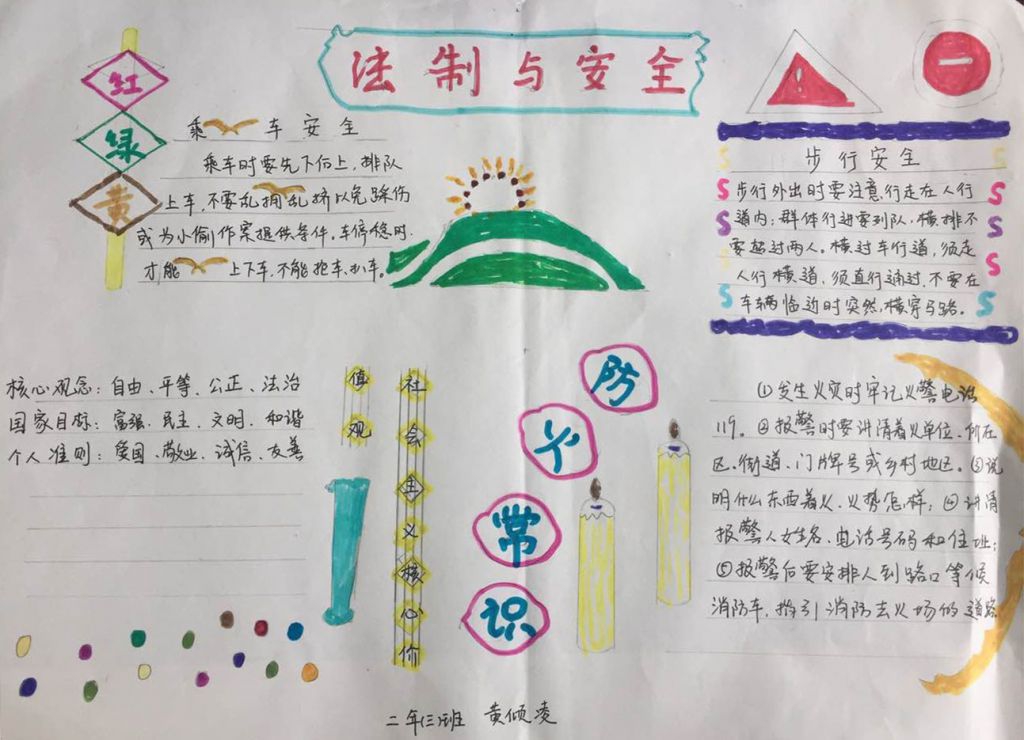 法制与安全
红
绿
黄
乘车安全
乘车时要先下后上，排队
上车，不要乱拥乱挤以免踩伤
或为小偷作案提供条件。车停稳时
才能上下车，不能抢车、扒车。
步行安全
步行外出时要注意行走在人行
道内；群体行进要列队，横排不
要超过两人。横过车行道，须走
人行横道，须直行通过，不要在
车辆临近时突然，横穿马路。
核心观念：自由、平等、公正、法治
国家目标：富强、民主、文明、和谐
个人准则：爱国、敬业、诚信、友善
社会主义核心价
值观
防火常识
①发生火灾时牢记火警电话
119。②报警时要讲清着火单位、所在
区、街道、门牌号或乡村地区。③说
明什么东西着火、火势怎样；④讲清
报警人姓名、电话号码和住址；
⑤报警后要安排人到路口等候
消防车，指引消防去火场的道路
二年(三)班 黄倾凌